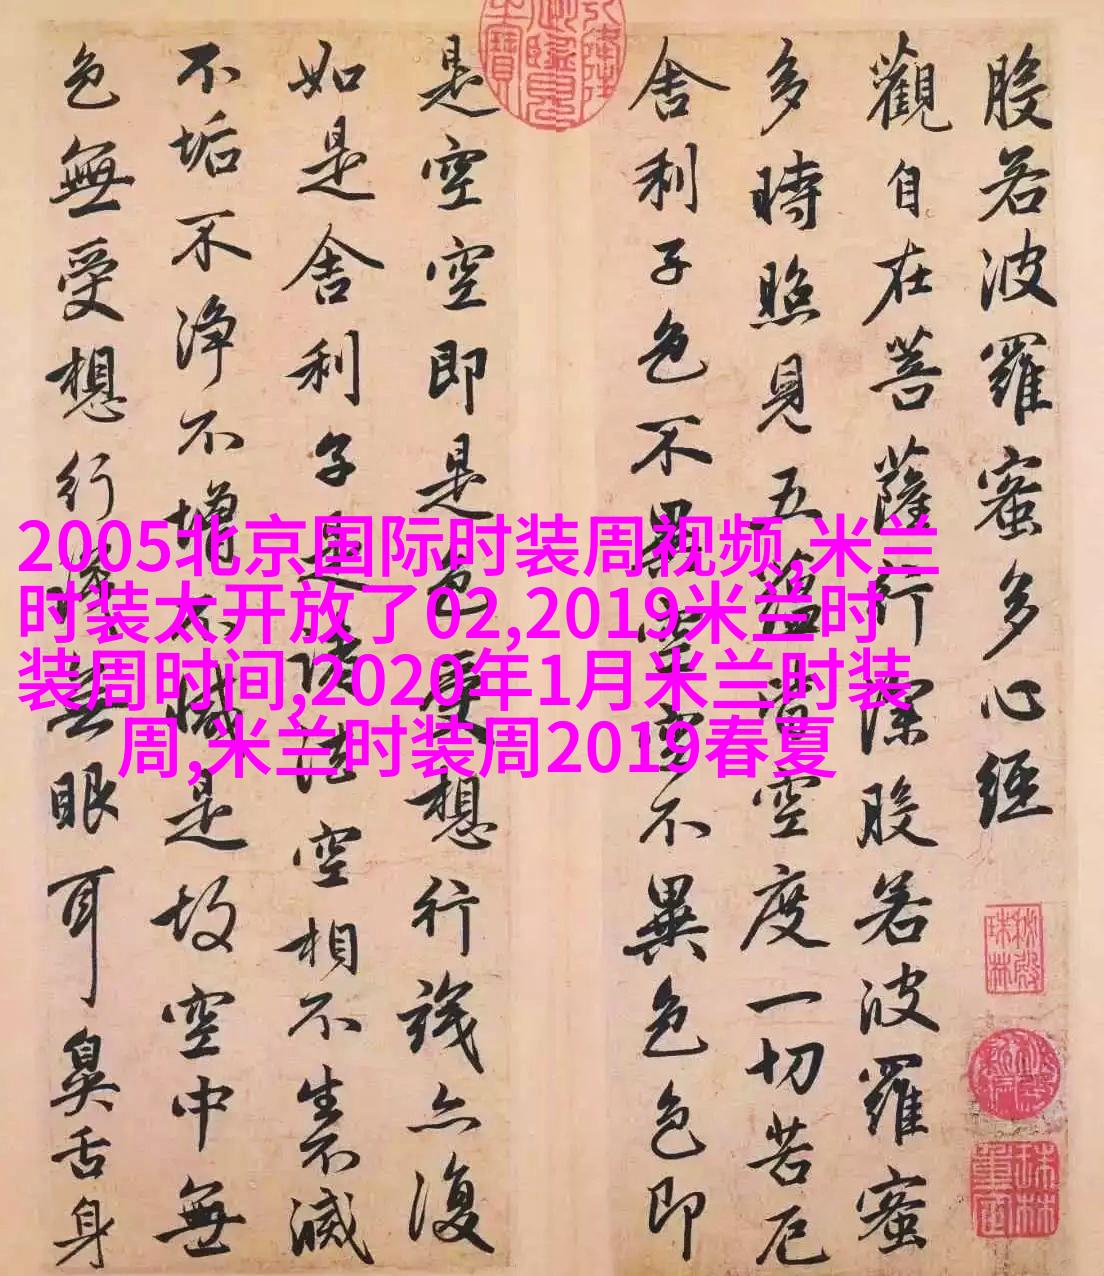 般若波羅蜜多心經
觀自在菩薩行深般若波羅蜜
多時照見五蘊皆空度一切苦厄
舍利子色不異空空不異色色即
是空空即是色受想行識亦復
如是舍利子是諸法空相不生不滅
不垢不淨不增不減是故空中無
色無受想行識無眼耳鼻舌身
2005北京国际时装周视频,米兰
时装太开放了02,2019米兰时
装周时间,2020年1月米兰时装
周,米兰时装周2019春夏